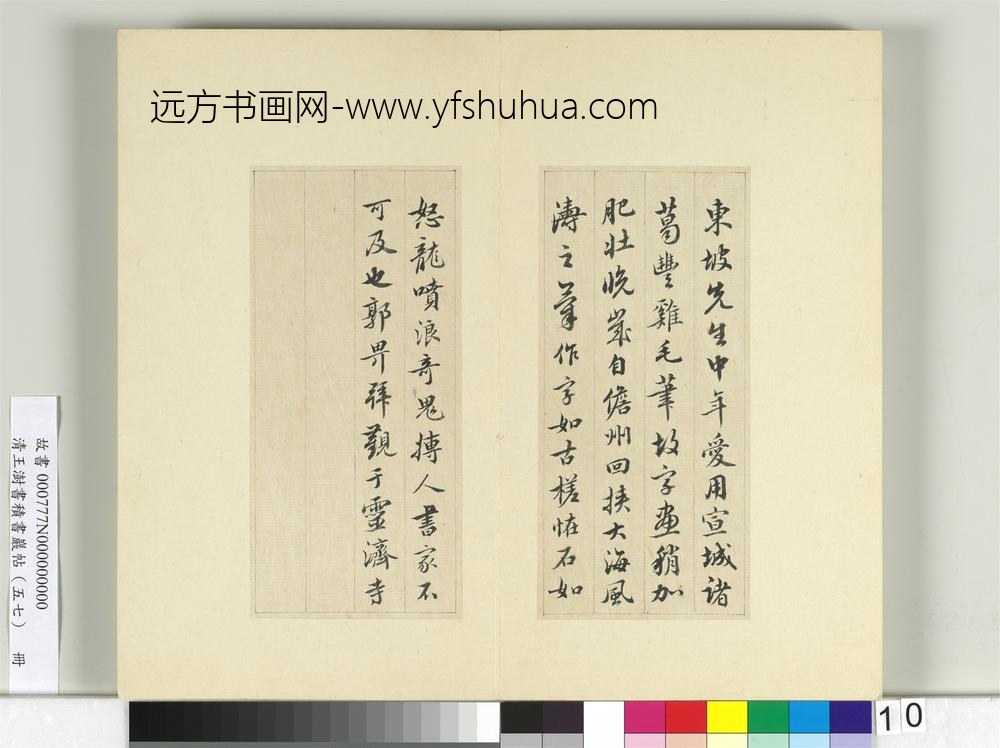 远方书画网-www.yfshuhua.com
東坡先生中年愛用宣城諸
葛豐雞毛筆故字畫稍加
肥壯晚歲自儋州回挾大海風
濤之氣作字如古槎怪石如
怒龍噴浪奇鬼搏人書家不
可及也郭畀拜觀于靈濟寺
故書 000777N000000000
清王澍書積書巖帖（五七） 冊
10